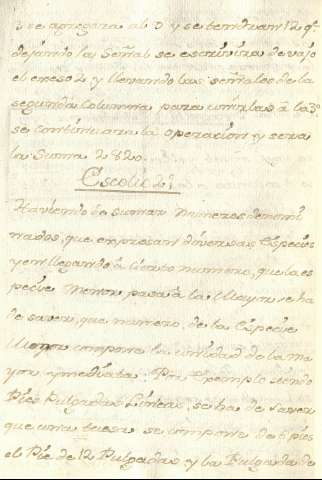 se agregara al D y se tendran 12 q.e
dejando la Señal se escrivira de vajo
el exeso 2 y llevando las señales de la
segunda columna para unirlas â la 3.a
se continuara la operacion y sera
la Suma 2820.
Escolio 2.º
Haviendo de sumar numeros denomi
nados, que expresan diversas Especies
y en llegando â cierto numero, que la es
pecie menor pasa â la Mayor se ha
de saver, que numero, de la Especie
Menor compone la unidad de la ma
yor ynmediata. Por Exemplo siendo
Pies Pulgadas Lineas, se ha de saver
que una tuesa se compone de 6 pies
el Pie de 12 Pulgadas y la Pulgada de